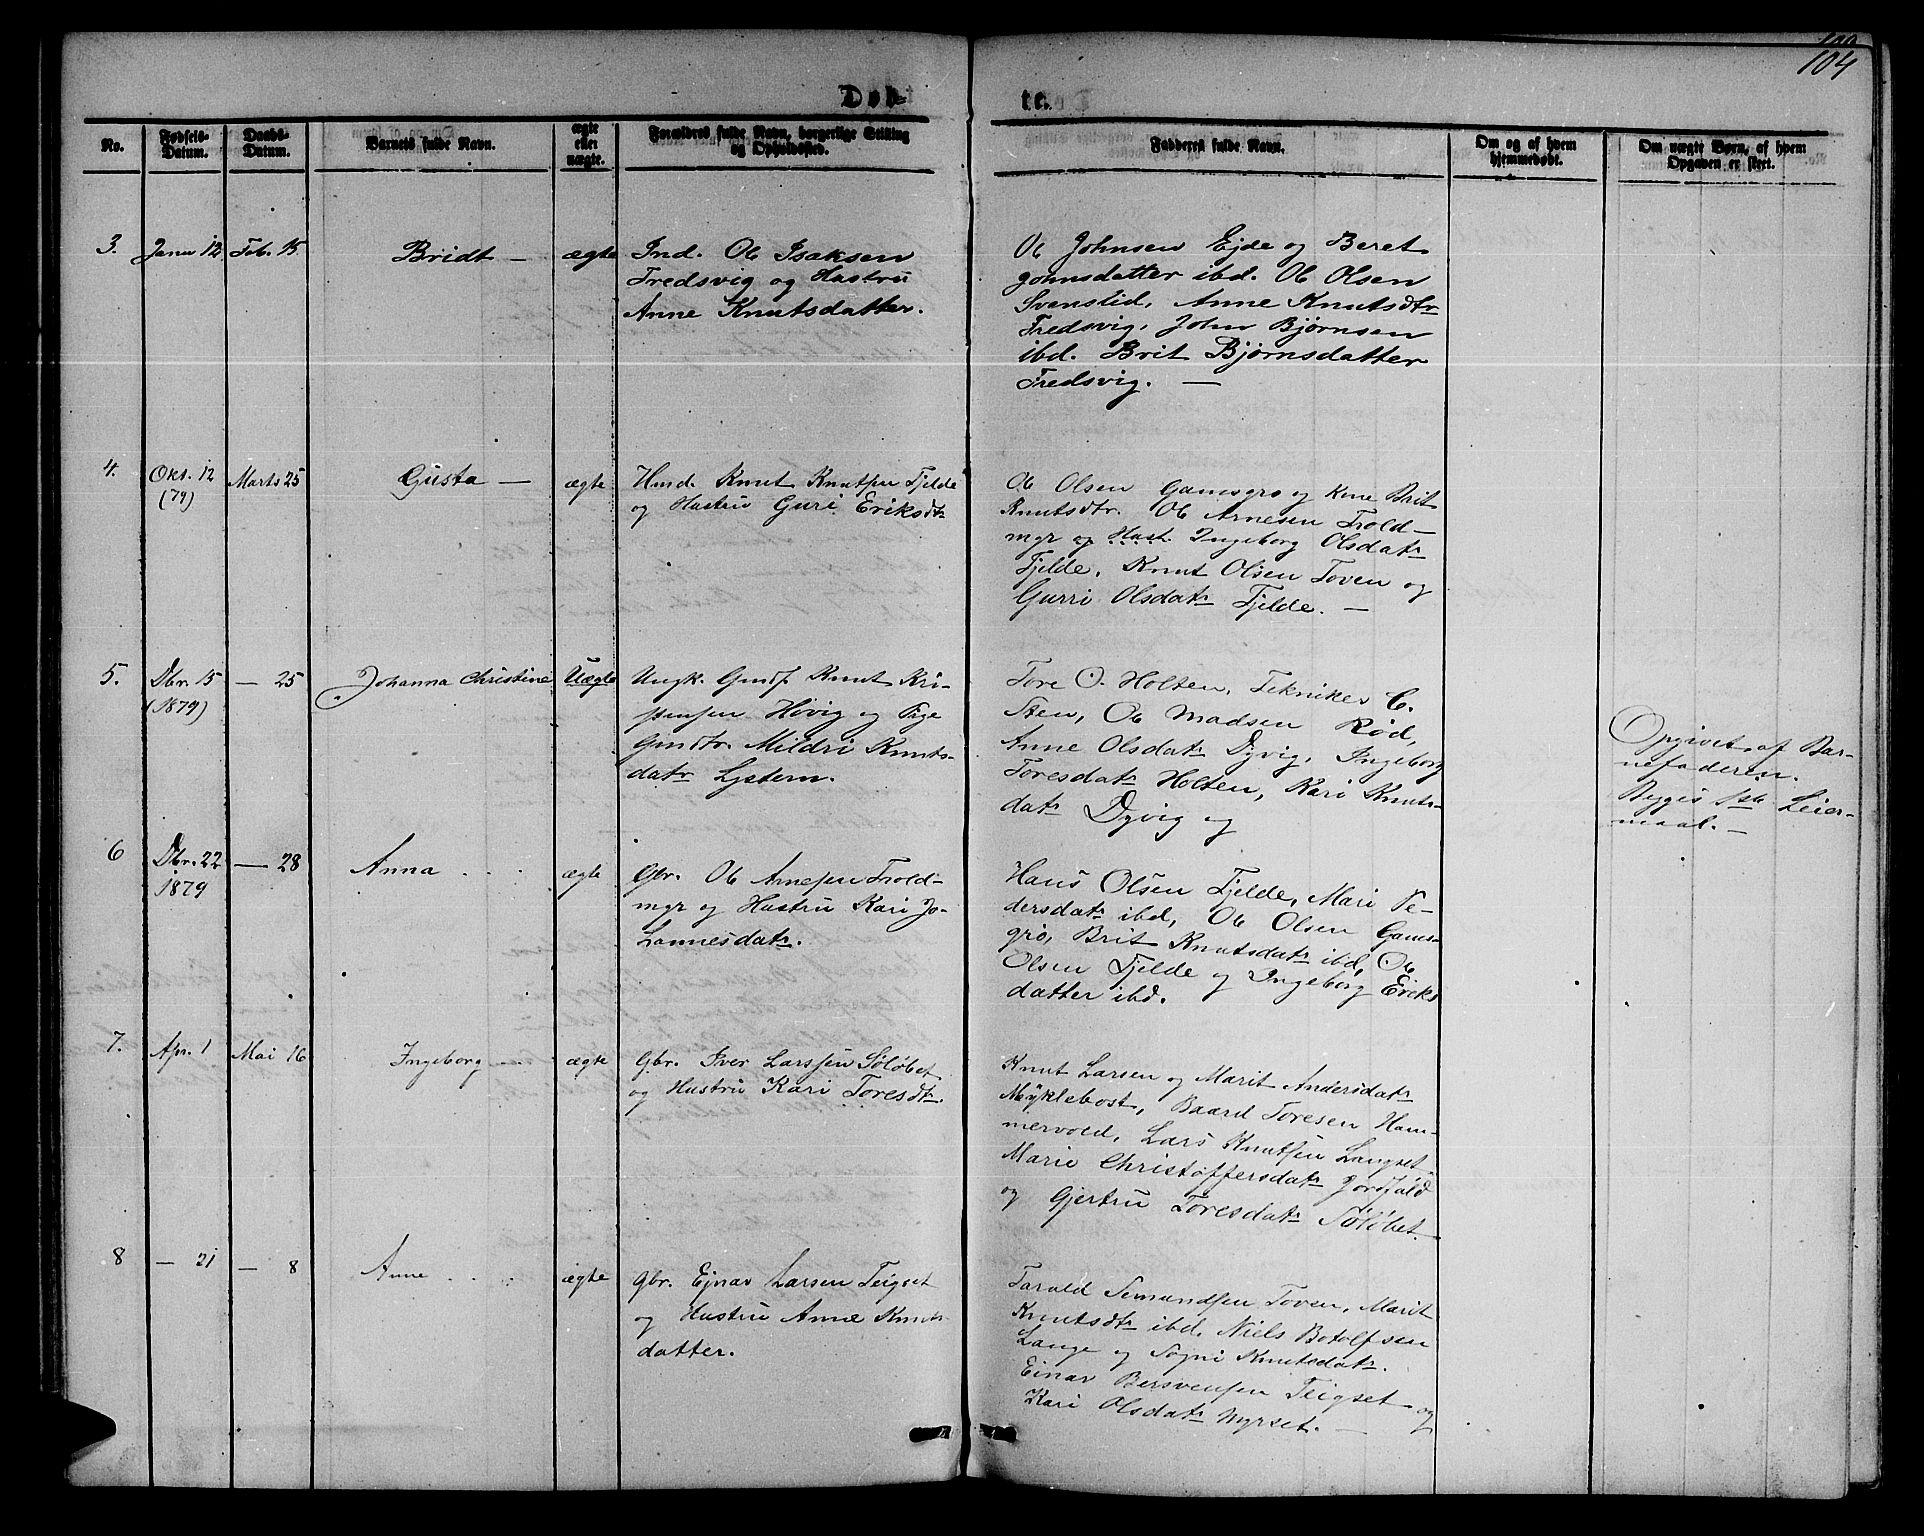 104
Døb-
te.
No.
Fødsels-
Datum.
Daabs-
Datum.
Barnets fulde Navn.
ægte
eller
uægte.
Forældres fulde Navn, borgerlige Stilling
og Opholdssted.
Fadderes fulde Navn.
Om og af hvem
hjemmedøbt.
Om uægte Børn, af hvem
Opgaven er skeet.
3.
Janu 12
Feb. 15
Bridt —
ægte
Ind. Ole Isaksen
Fredsvig og Hustru
Anne Knutsdatter.
Ole Johnsen Ejde og Beret
Johnsdatter ibd. Ole Olsen
Svenslid, Anne Knutsdtr
Fredsvig, John Bjørnsen
ibd. Brit Bjørnsdatter
Fredsvig. —
4.
Okt. 12
(79)
Marts 25
Gusta —
ægte
Hmd. Knut Knutsen Fjelde
og Hustru Guri Eriksdtr
Ole Olsen Gamsgrø og Kone Brit
Knutsdtr. Ole Arnesen Trold-
myr og Hust. Ingeborg Olsdatr
Fjelde, Knut Olsen Toven og
Gurri Olsdatr Fjelde. —
5.
Dbr. 15
(1879)
— 25
Johanna Christine
Uægte
Ungk. Gmdf. Knut Kri-
stensen Høvig og Pige
Gmdtr. Mildri Knuts-
datr Lystern.
Tore O. Holten, Tekniker C.
Sten, Ole Madsen Rød,
Anne Olsdatr Dyvig, Ingeborg
Toresdatr Holten, Kari Knuts-
datr Dyvig og
Opgivet af Bar-
nefaderen.
Begges 1ste Leier-
maal. —
6
Dbr. 22
1879
— 28
Anna
ægte
Gbr. Ole Arnesen Trold-
myr og Hustru Kari Jo-
hannesdatr.
Hans Olsen Fjelde, Mari Pe-
dersdatr ibd, Ole Olsen Gams-
grø, Brit Knutsdatr ibd, Ole
Olsen Fjelde og Ingeborg Eriks
datter ibd.
7.
Apr. 1
Mai 16
Ingeborg
ægte
Gbr. Iver Larssen Søløbet
og Hustru Kari Toresdtr.
Knut Larsen og Marit Andersdatr
Myklebost, Baard Toresen Ham-
mervold, Lars Knutsen Langset
Marie Christoffersdatr
og Gjertru Toresdatr Søløbet.
8
— 21
— 8
Anne
ægte
Gbr. Ejnar Larsen Teigset
og Hustru Anne Knuts-
datter.
Tarald Semundsen Toven, Marit
Knutsdtr ibd. Niels Botolfsen
Lange og Sogni Knutsdatr.
Einar Bersvensen Teigset og
Kari Olsdatr Myrset. —